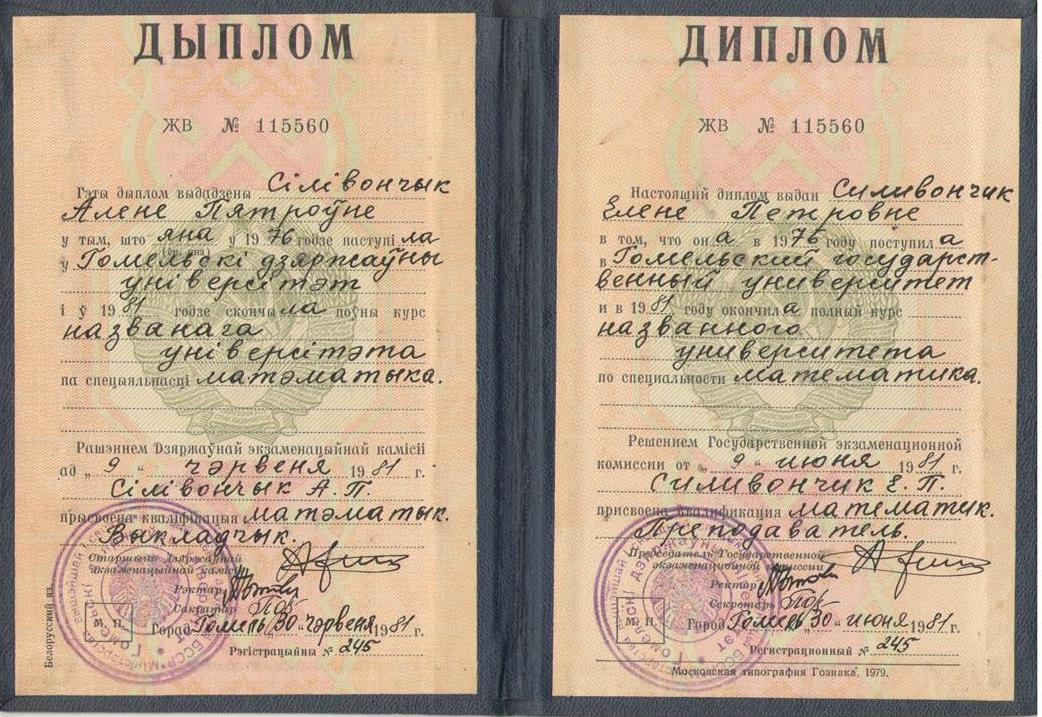 ДЫПЛОМ
ЖВ № 115560
Гэты дыплом выдадзены Сілівончык
Алене Пятроўне
у тым, што яна у 1976 годзе паступіла
у Гомельскі дзяржаўны
універсітэт
і ў 1981 годзе скончыла поўны курс
названага
універсітэта
па спецыяльнасці матэматыка.
Рашэннем Дзяржаўнай экзаменацыйнай камісіі
ад „9" чэрвеня 1981 г.
Сілівончык А.П.
прысвоена кваліфікацыя матэматык.
Выкладчык.
Старшыня Дзяржаўнай
экзаменацыйнай камісіі
Рэктар
Сакратар
М. П.
Город Гомель „30" чэрвеня 1981 г.
Рэгістрацыйны № 245
Белорусский яз.
ДИПЛОМ
ЖВ № 115560
Настоящий диплом выдан Силивончик
Елене Петровне
в том, что она в 1976 году поступила
в Гомельский государст-
венный университет
и в 1981 году окончила полный курс
названного
университета
по специальности математика.
Решением Государственной экзаменационной
комиссии от „9" июня 1981 г.
Силивончик Е.П.
присвоена квалификация математик.
Преподаватель.
Председатель Государственной
экзаменационной комиссии
Ректор
Секретарь
М. П.
Город Гомель „30" июня 1981 г.
Регистрационный № 245
Московская типография Гознака. 1979.